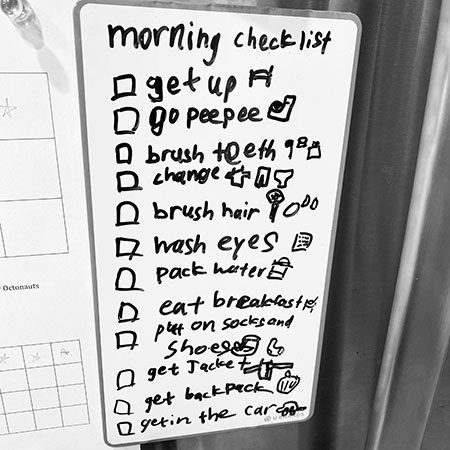 morning checklist
get up
go peepee
brush teeth
change
brush hair
wash eyes
pack water
eat breakfast
putt on socks and
shoes
get Jacket
get backpack
get in the car
Octonauts